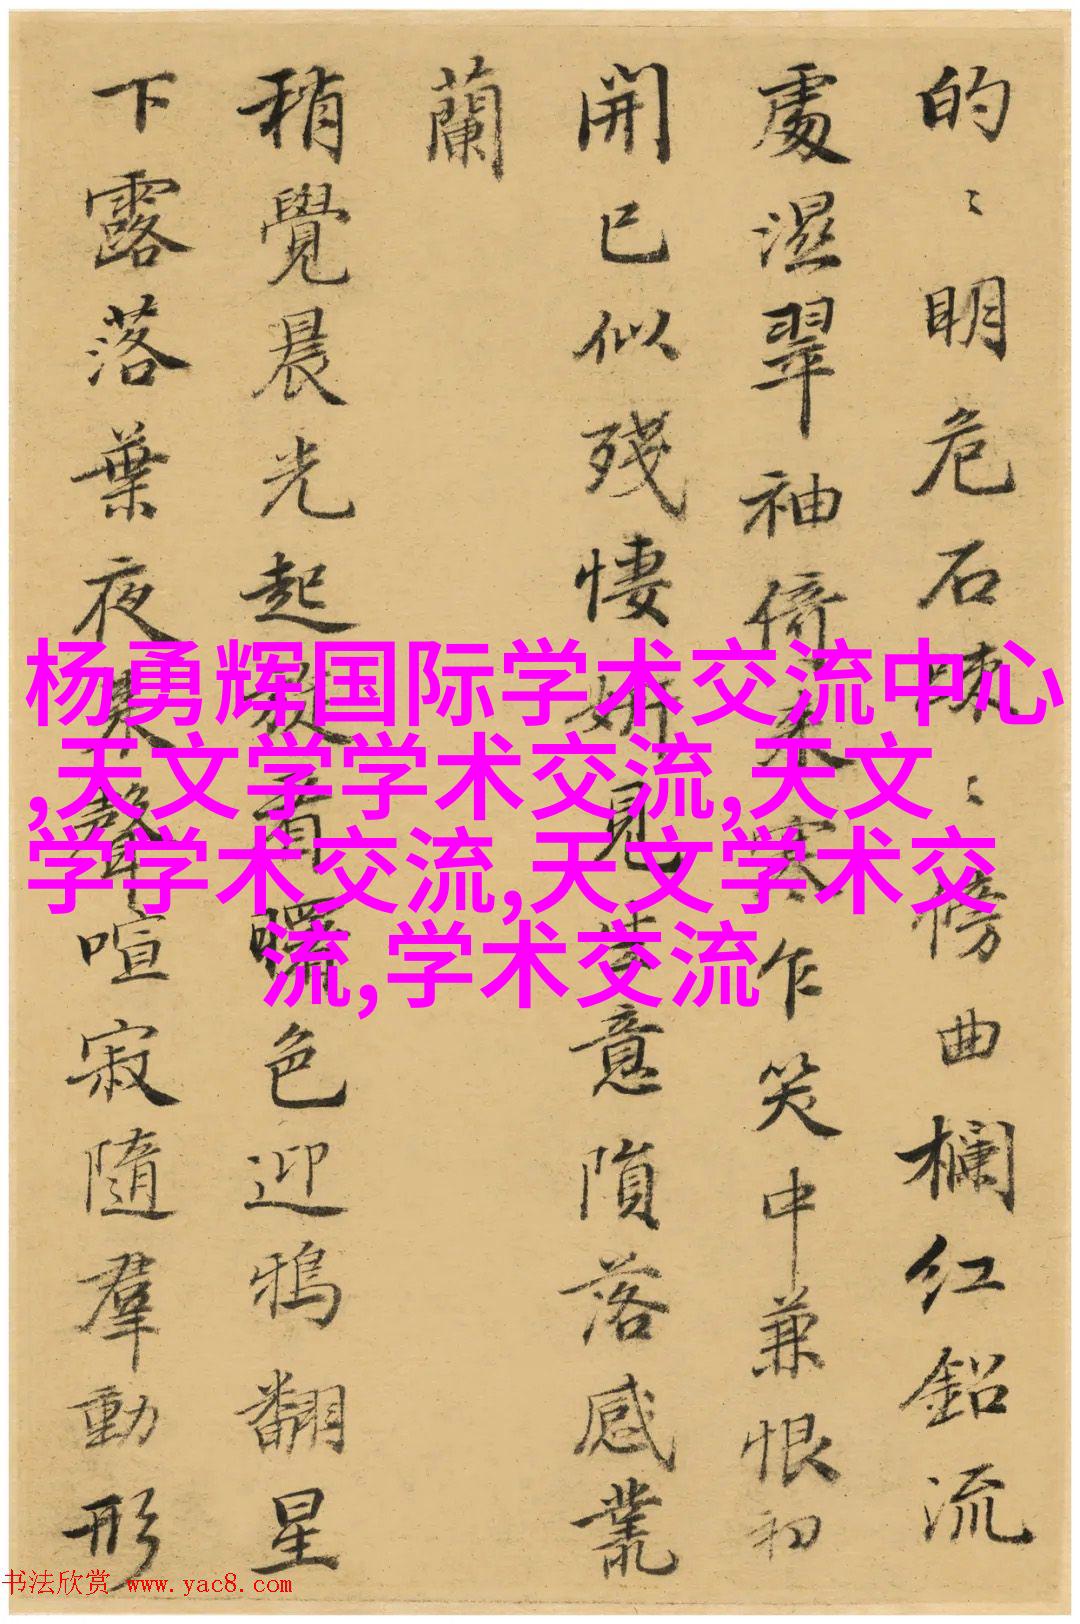 的〻明危石竦〻傍曲欄红鉛流
處濕翠袖倚来寒乍笑中兼恨初
開已似殘悽妍見古意隕落感叢
蘭
稍覺晨光起巖看曙色迎鴉翻星
下露落葉夜聲喧寂隨羣動形
杨勇辉国际学术交流中心
,天文学学术交流,天文
学学术交流,天文学术交
流,学术交流
书法欣赏 www.yac8.com